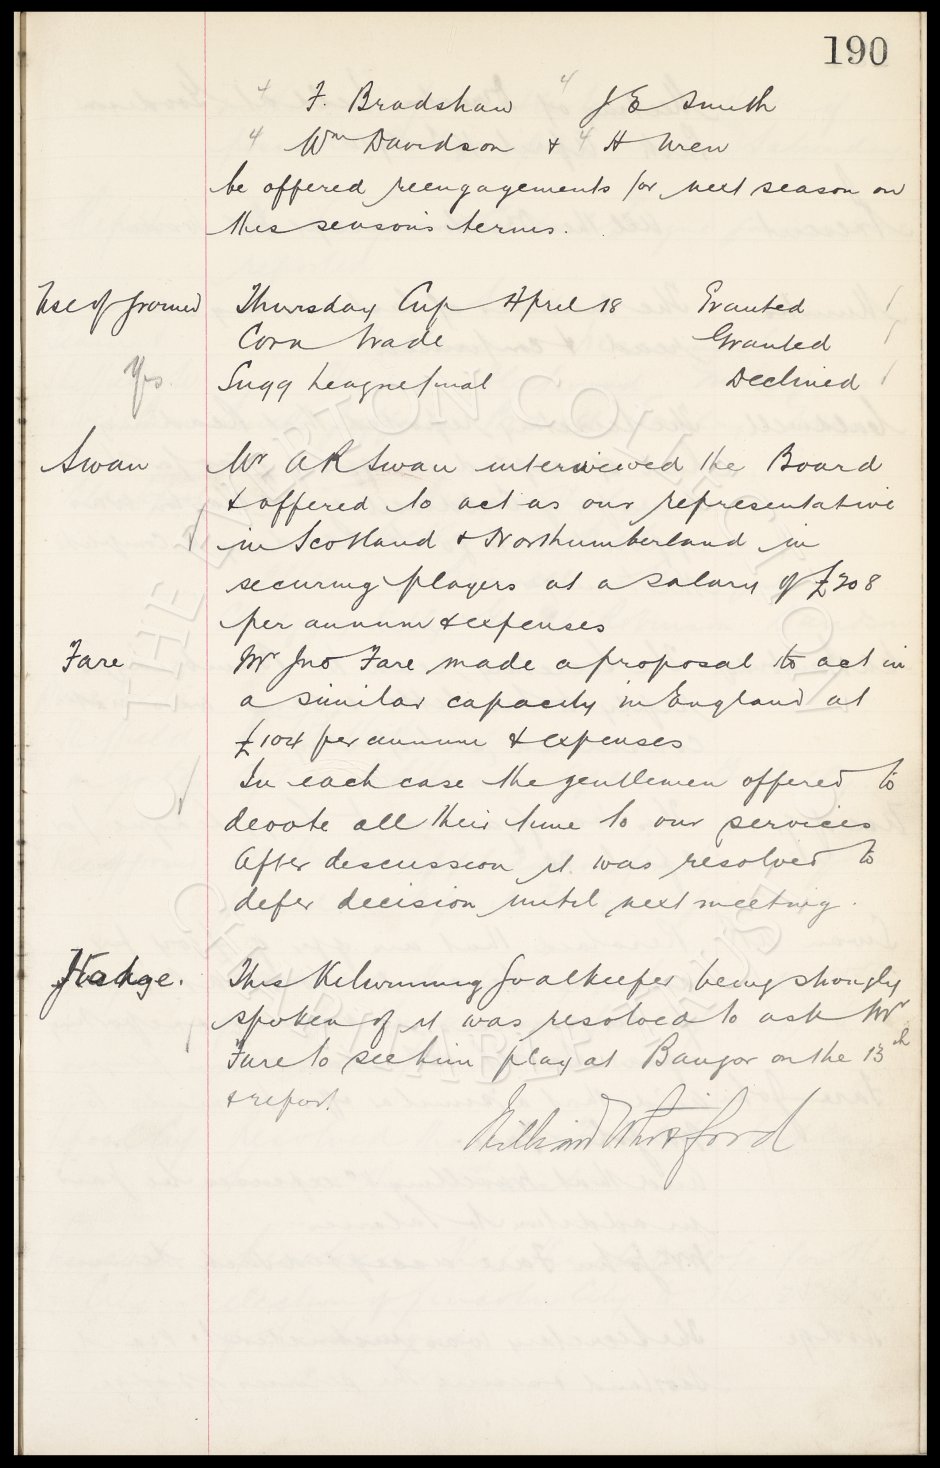 190
4 F. Bradshaw 4 J E Smith
4 Wm Davidson & 4 H Wren
be offered reengagements for next season on
this season's terms.
Use of ground Thursday Cup April 18 Granted
Corn Trade Granted
Yes. Sugg League final Declined
Swan Mr A R Swan interviewed the Board
& offered to act as our representative
in Scotland & Northumberland in
securing players at a salary of £208
per annum & expenses
Fare Mr Jno Fare made a proposal to act in
a similar capacity in England at
£104 per annum & expenses
In each case the gentlemen offered to
devote all their time to our services
After discussion it was resolved to
defer decision until next meeting.
Hodge. This Kilwinning Goalkeeper being strongly
spoken of it was resolved to ask Mr
Fare to see him play at Bangor on the 13th
& report.
William